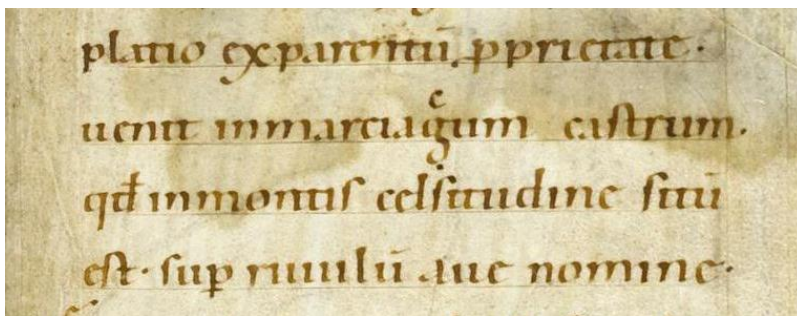 platio ex parentū. ꝓprietate·
uenit inmarciagum castrum·
qđ inmontis celsitudine sitū
est· sup̄ riuulū aue nomine·